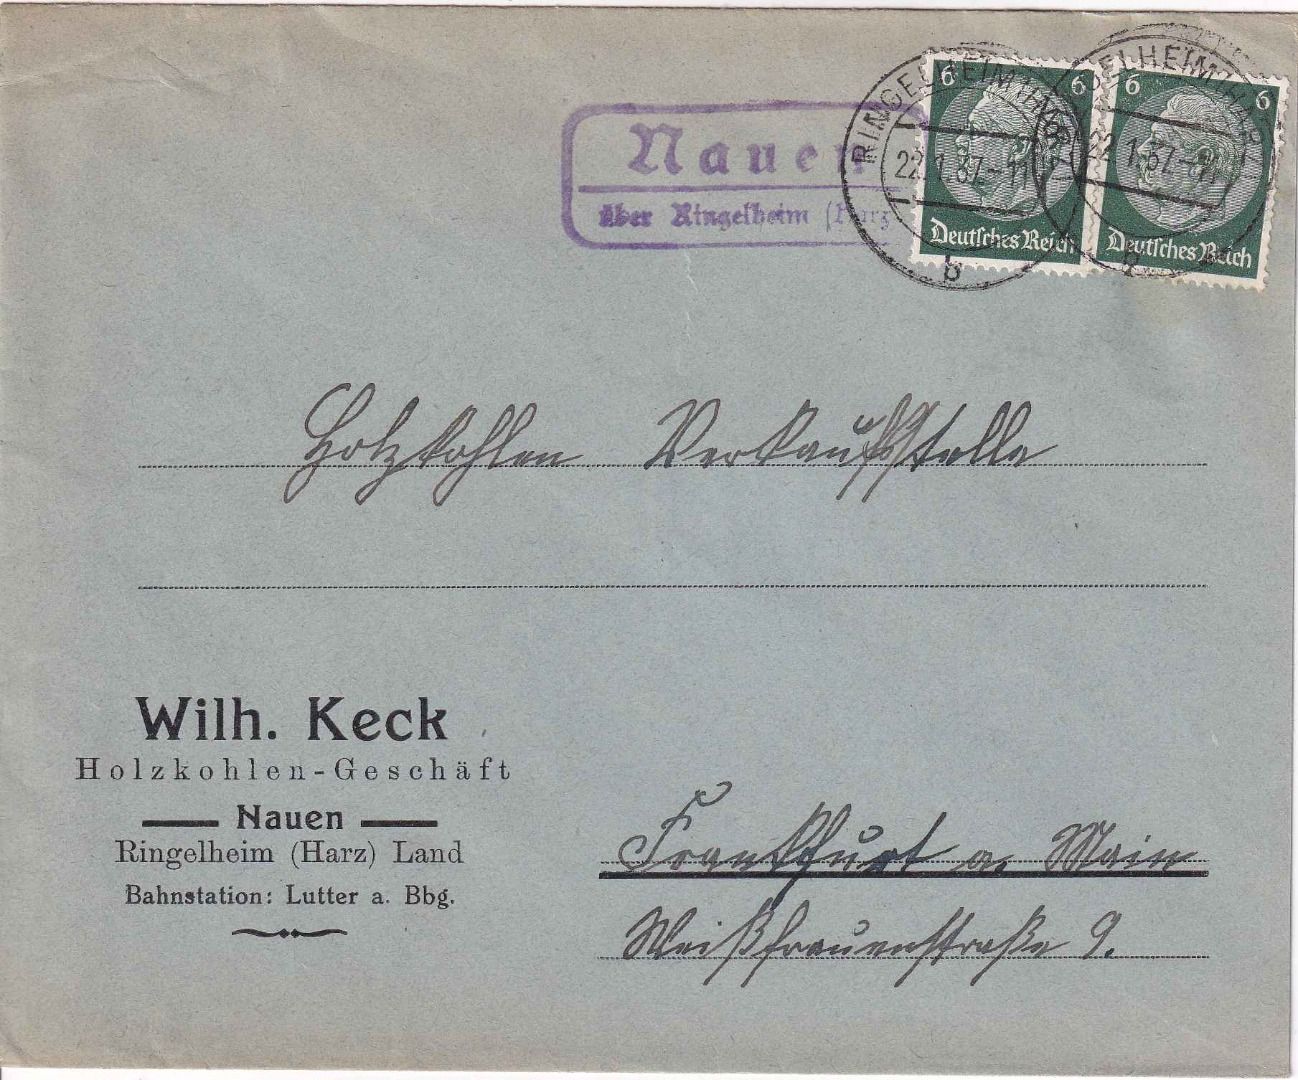 Nauen
über Ringelheim (Harz
RINGELHEIM (HARZ)
22.1.37-11
b
RINGELHEIM (HARZ)
22.1.37-11
b
6 6
Deutsches Reich
6 6
Deutsches Reich
Holzkohlen Verkaufsstelle
Wilh. Keck
Holzkohlen-Geschäft
Nauen
Ringelheim (Harz) Land
Bahnstation: Lutter a. Bbg.
Frankfurt a. Main
Weißfrauenstraße 9.